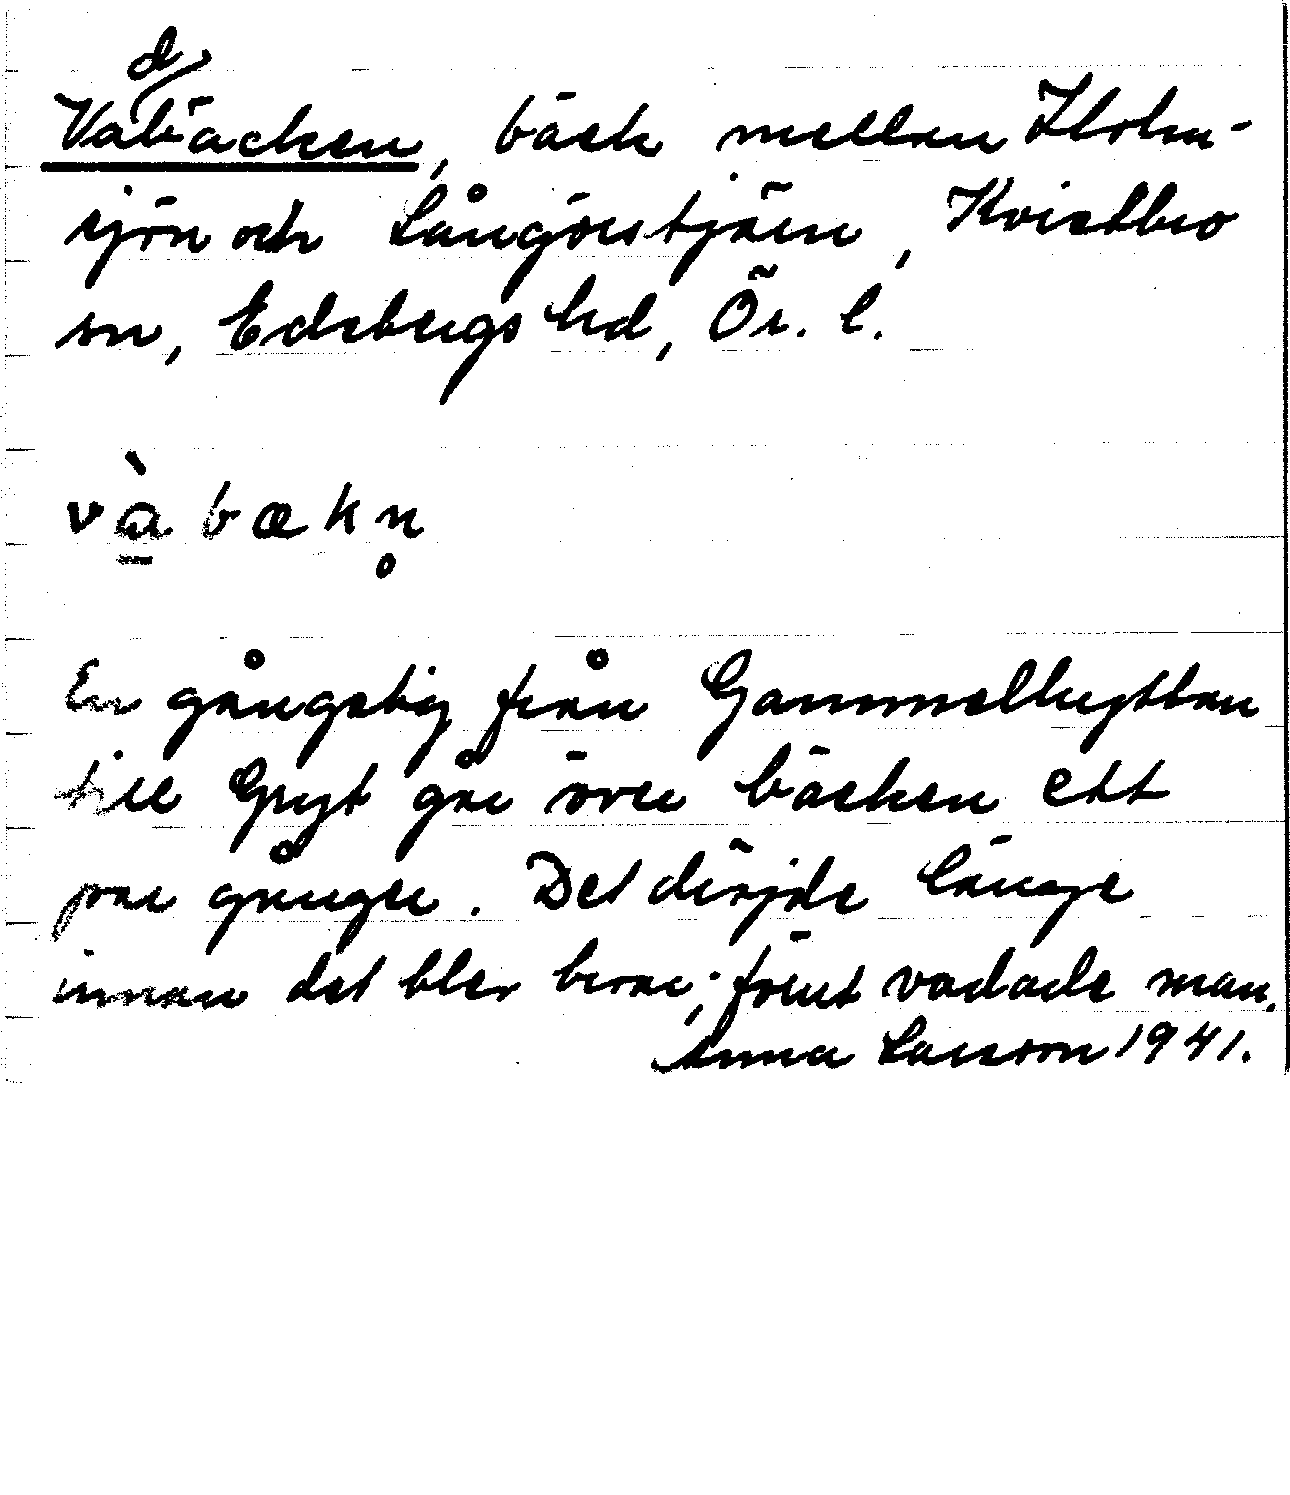 Vadbäcken, bäck mellan Holm-
sjön och Långörstjärn, Kvistbro
sn, Edsbergs hd, Ör. l.
và̠bækn̥
En gångstig från Gammelhyttan
till Gryt går över bäcken ett
par gånger. Det dröjde länge
innan det blev broar; förut vadade man.
Anna Larsson 1941.